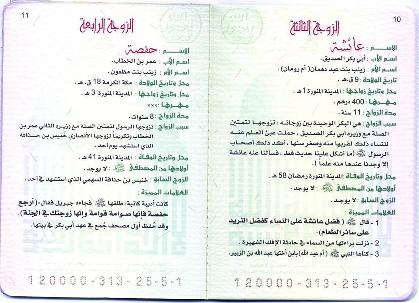 10
الزوجة الثالثة
الاســـم : عائشة
اسم الأب : أبي بكر الصديق.
اسم الأم : زينب بنت عبد دهمان ( أم رومان )
محل وتاريخ الولادة : 9 ق.هـ.
محل وتاريخ زواجها : المدينة المنورة 1 هـ.
مهــرها : 400 درهم.
مدة الزواج : 11 سنة.
سبب الزواج : هي البكر الوحيدة بين زوجاته ، تزوجها لتمتين
الصلة مع وزيره أبي بكر الصديق، حملت عبئ العلم عنه
للنساء ذلك لقربها منه وصغر سنها. أكد ذلك أصحاب
الرسول ﷺ (ما أشكل علينا حديث قط، فسألنا عنه عائشة
إلا وجدنا عندها منه علماً ).
محل وتاريخ الوفاة : المدينة المنورة رمضان 58 هـ.
أولادها من المصطفى ﷺ : لا يوجد.
الزوج السابق : لا يوجد.
العلامات المميزة :
1 - قال ﷺ ( فضل عائشة على النساء كفضل الثريد
على سائر الطعام ).
2 - نزلت براءتها من السماء في حادثة الإفك الشهيرة .
3 - كناها النبي ﷺ ( أم عبد الله ) بابن أختها عبد الله بن الزبير.
120000-313-25-5-1
11
الزوجة الرابعة
الاســـم : حفصة
اسم الأب : عمر بن الخطاب.
اسم الأم : زينب بنت مظعون.
محل وتاريخ الولادة : مكة المكرمة 18 ق.هـ.
محل وتاريخ زواجها : المدينة المنورة 3 هـ.
مهــرها : ×××
مدة الزواج : 8 سنوات.
سبب الزواج : تزوجها الرسول لتمتين الصلة مع وزيره الثاني عمر بن
الخطاب وتكريما لزوجها الأنصاري، خنيس بن حذافة
الذي استشهد يوم أحد.
محل وتاريخ الوفاة : المدينة المنورة 41 هـ.
أولادها من المصطفى ﷺ : لا يوجد.
الزوج السابق : خنيس بن حذافة السهمي الذي استشهد في أحد.
العلامات المميزة :
كانت أدبية كاتبة، طلقها ﷺ فجاءه جبريل فقال، (أرجع
حفصة فإنها صوامة قوامة وإنها زوجتك في الجنة).
وقد حفظ أول مصحف جمع في عهد أبي بكر في بيتها.
120000-313-25-5-1